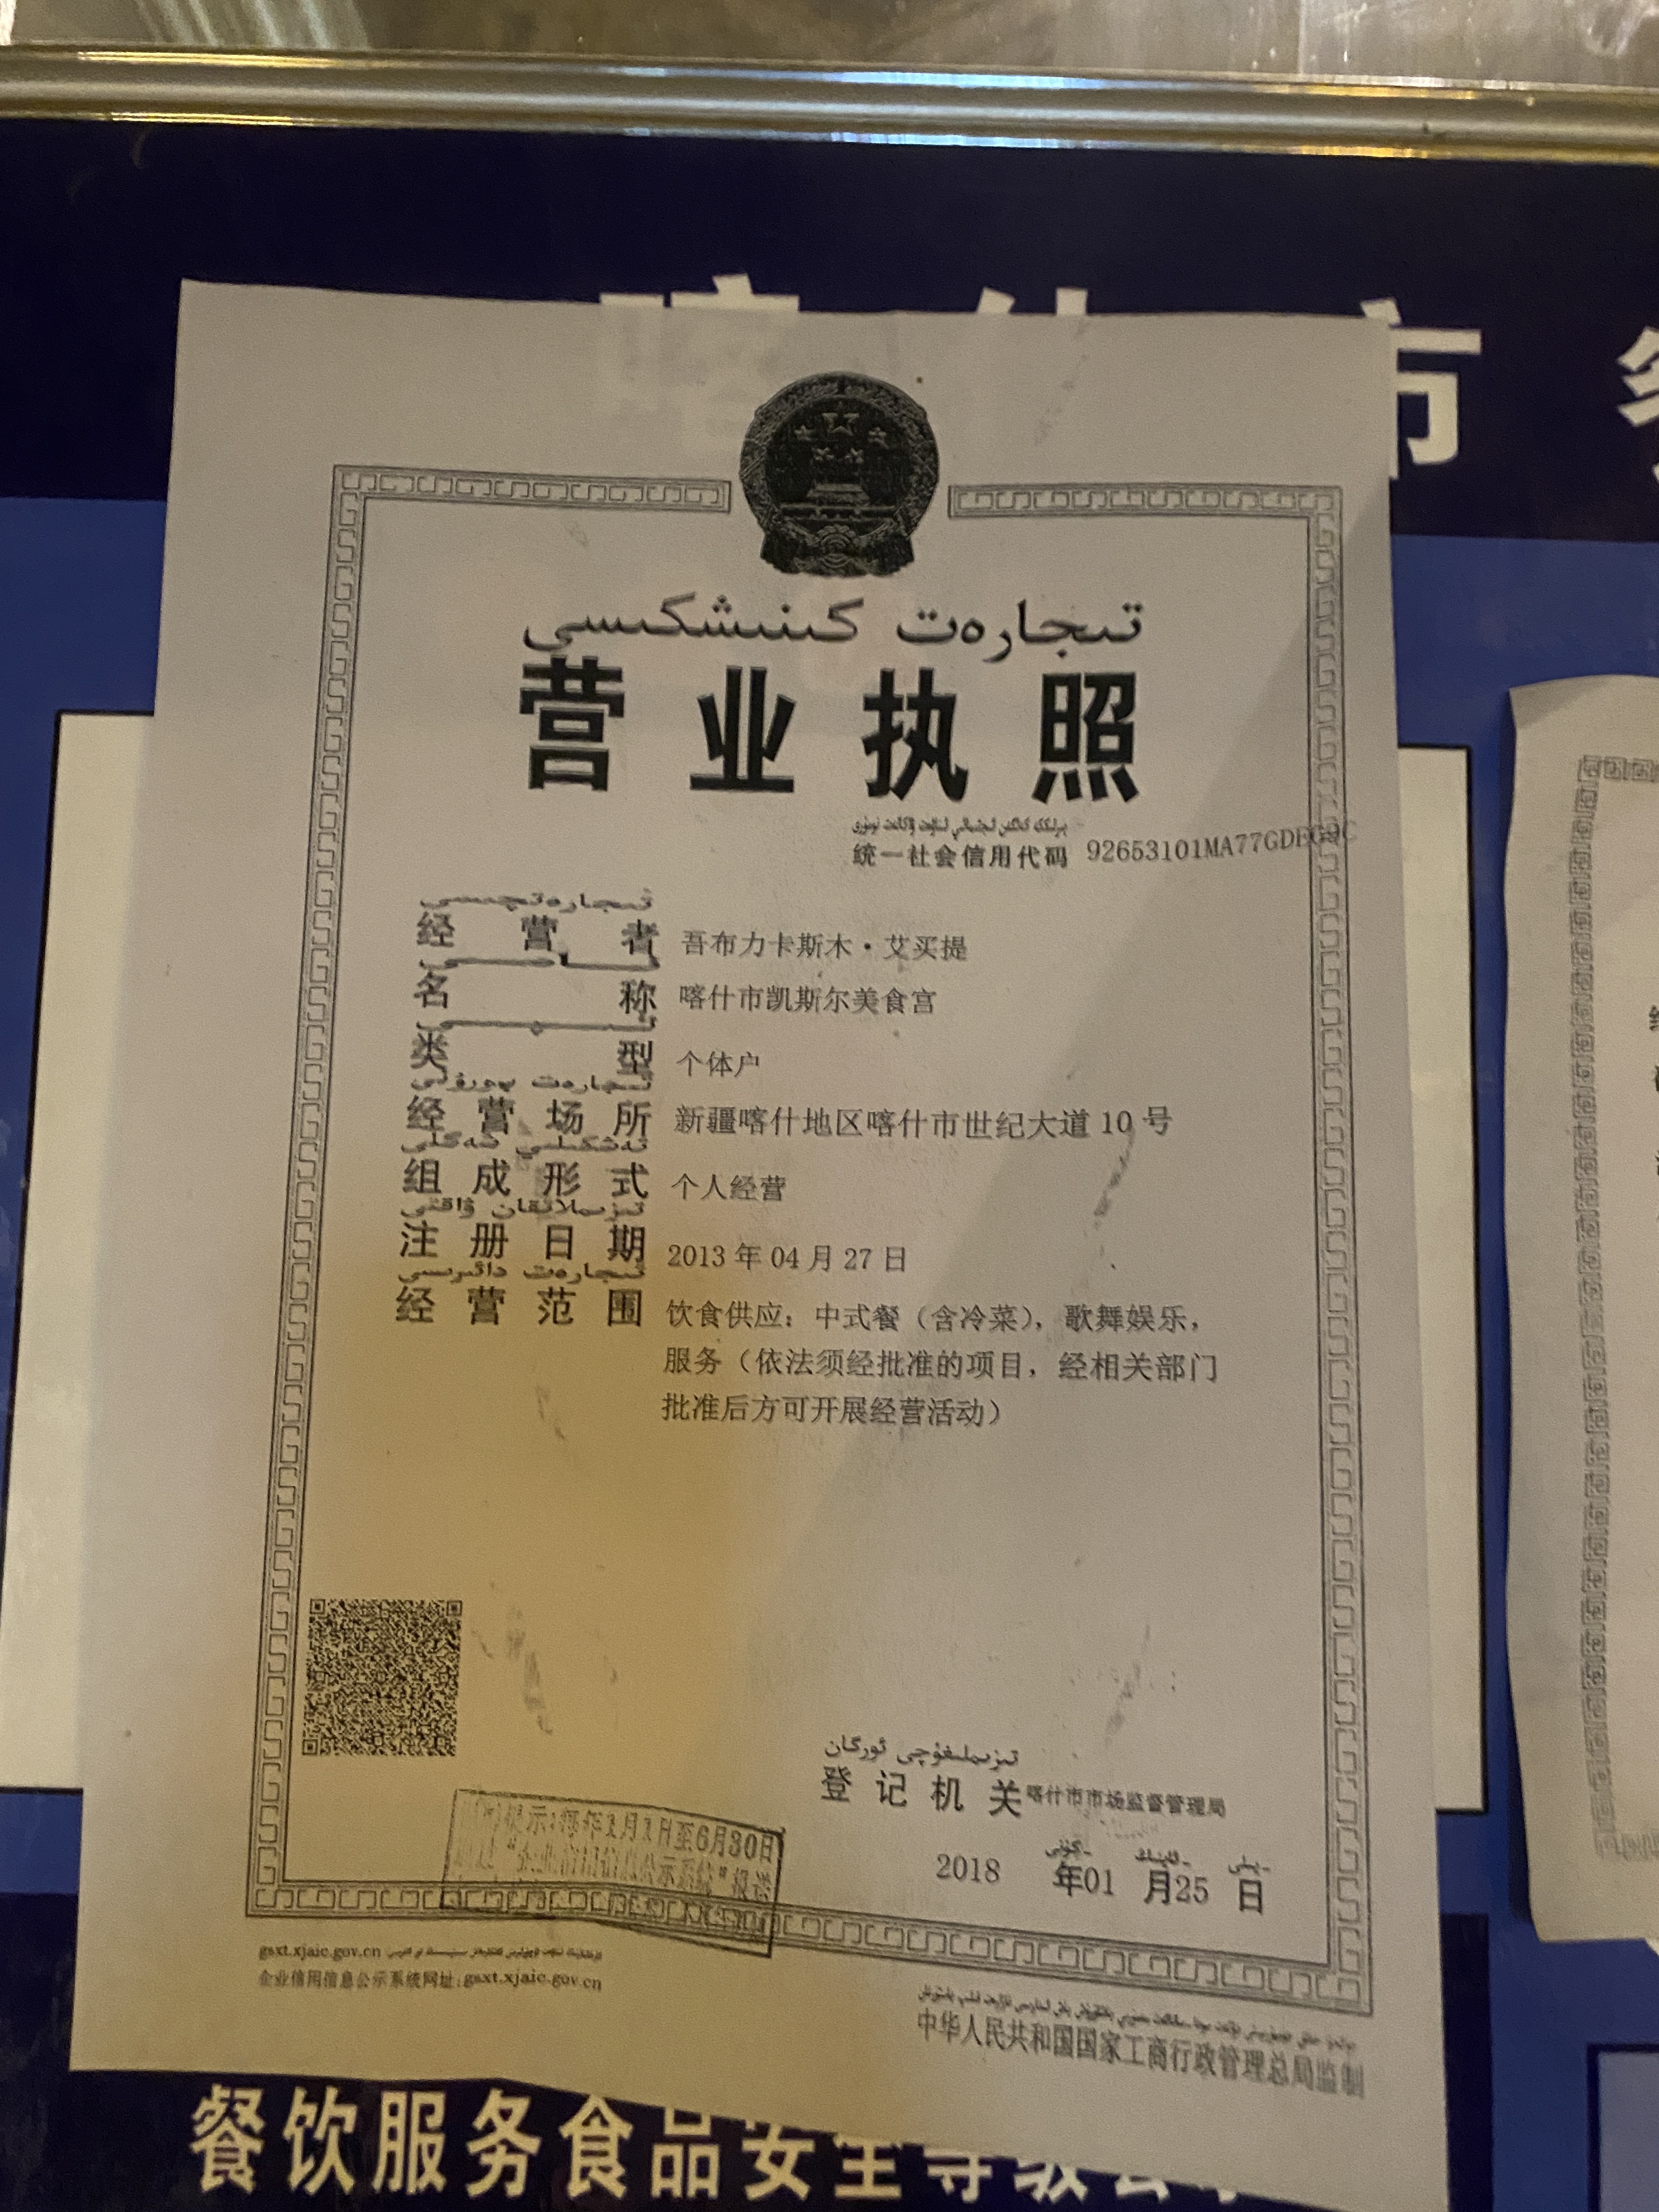 市
تىجارەت كىنىشكىسى
营业执照
统一社会信用代码 92653101MA77GDEG9C
تىجارەتچىسى
经营者 吾布力卡斯木·艾买提
名称 喀什市凯斯尔美食宫
类型 个体户
تىجارەت سورۇنى
经营场所 新疆喀什地区喀什市世纪大道10号
تەشكىللىي شەكلى
组成形式 个人经营
تىزىملاتقان ۋاقتى
注册日期 2013年04月27日
تىجارەت دائىرىسى
经营范围 饮食供应:中式餐(含冷菜),歌舞娱乐,
服务(依法须经批准的项目,经相关部门
批准后方可开展经营活动)
تىزىملىغۇچى ئورگان
登记机关 喀什市市场监督管理局
2018年01月25日
提示:每年1月1日至6月30日
"企业信用信息公示系统"报送
gsxt.xjaic.gov.cn
企业信用信息公示系统网址:gsxt.xjaic.gov.cn
中华人民共和国国家工商行政管理总局监制
餐饮服务食品安全等级公示